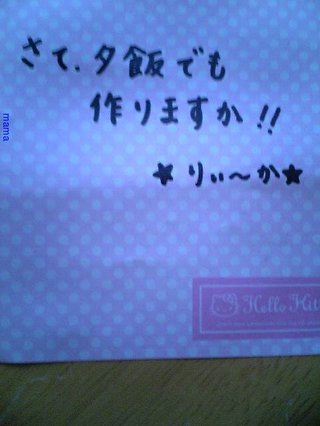 さて、夕飯でも
作りますか!!
★りぃ〜か★
mama
Hello Kit